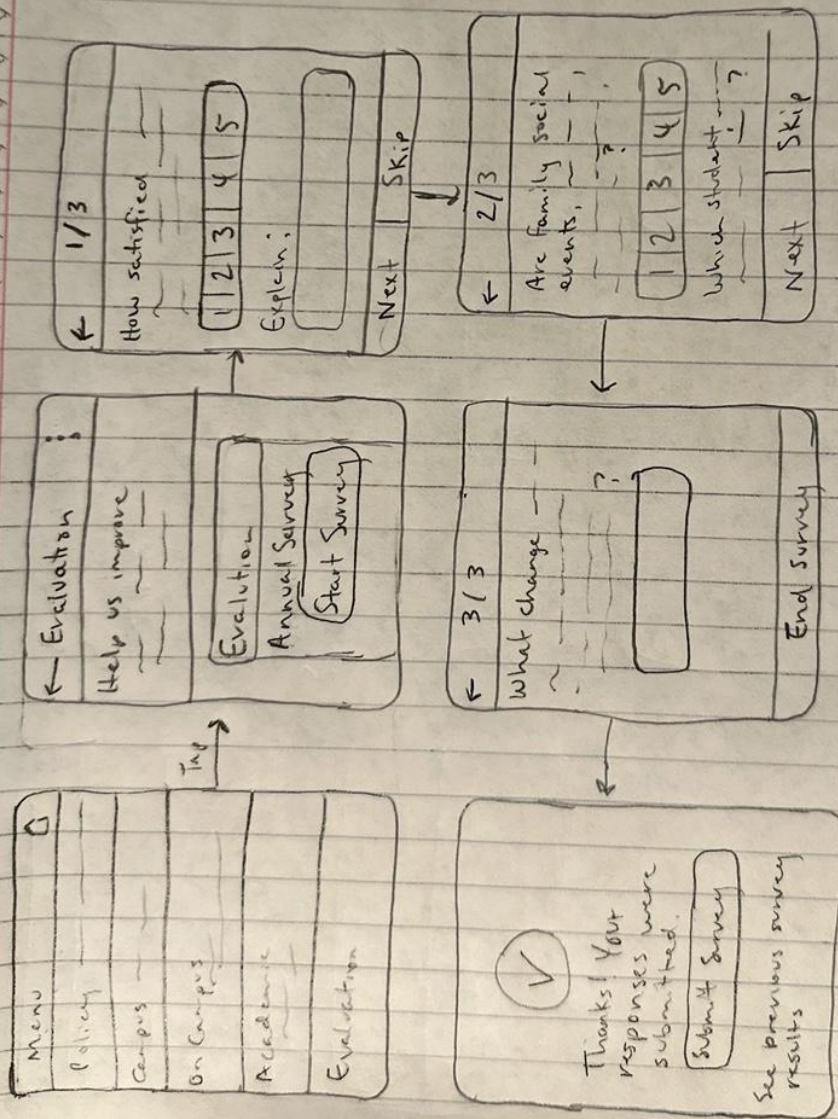 Menu
Policy
Campus
On Campus
Academic
Evaluation
Tap
← Evaluation
Help us improve
Evalution
Annual Survey
Start Survey
← 1/3
How satisfied
1 2 3 4 5
Explain:
Next | Skip
← 2/3
Are family social
events,
?
1 2 3 4 5
Which student
?
Next | Skip
← 3/3
What change
?
End Survey
Thanks! Your
responses were
submitted.
Submit Survey
See previous survey
results